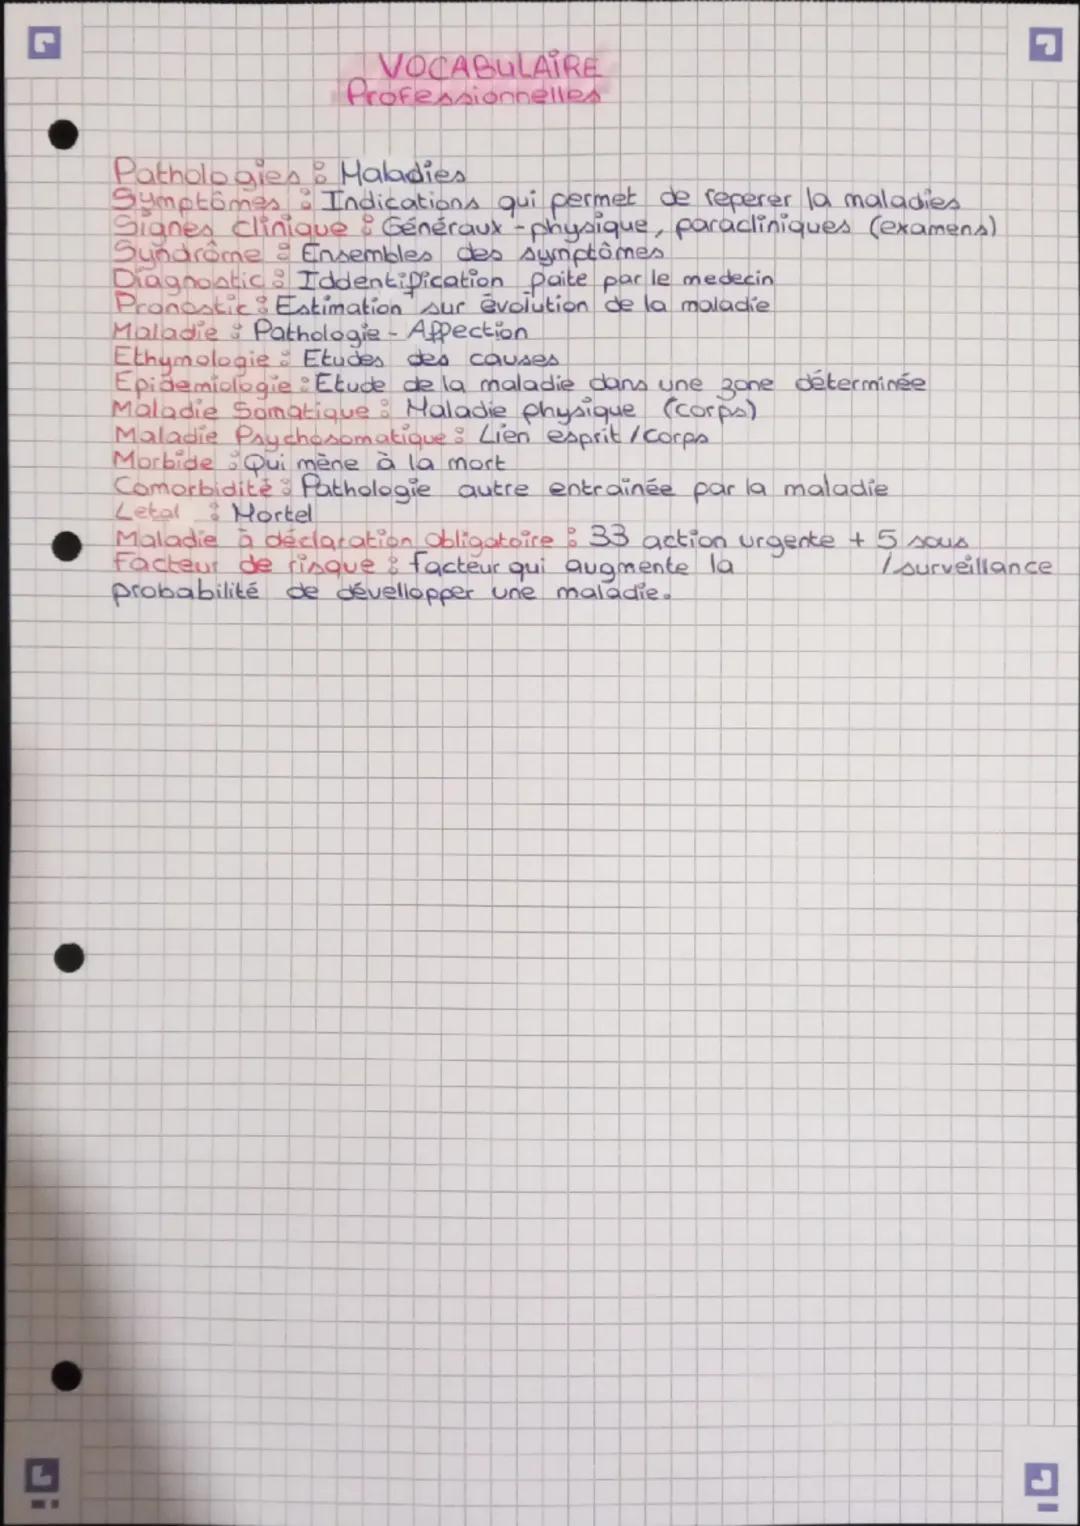 VOCABULAIRE
Professionnelles
Pathologies : Maladies
Symptômes : Indications qui permet de reperer la maladies
Signes clinique : Généraux - physique, paracliniques (examens)
Syndrôme : Ensembles des symptômes
Diagnostic : Iddentification faite par le medecin
Pronostic : Estimation sur évolution de la maladie
Maladie : Pathologie - Affection
Ethymologie : Etudes des causes
Epidemiologie : Etude de la maladie dans une zone déterminée
Maladie Somatique : Maladie physique (corps)
Maladie Psychosomatique : Lien esprit / corps
Morbide : Qui mène à la mort
Comorbidité : Pathologie autre entraînée par la maladie
Letal : Mortel
Maladie à déclaration obligatoire : 33 action urgente + 5 sous
/ surveillance
Facteur de risque : facteur qui augmente la
probabilité de dévellopper une maladie.